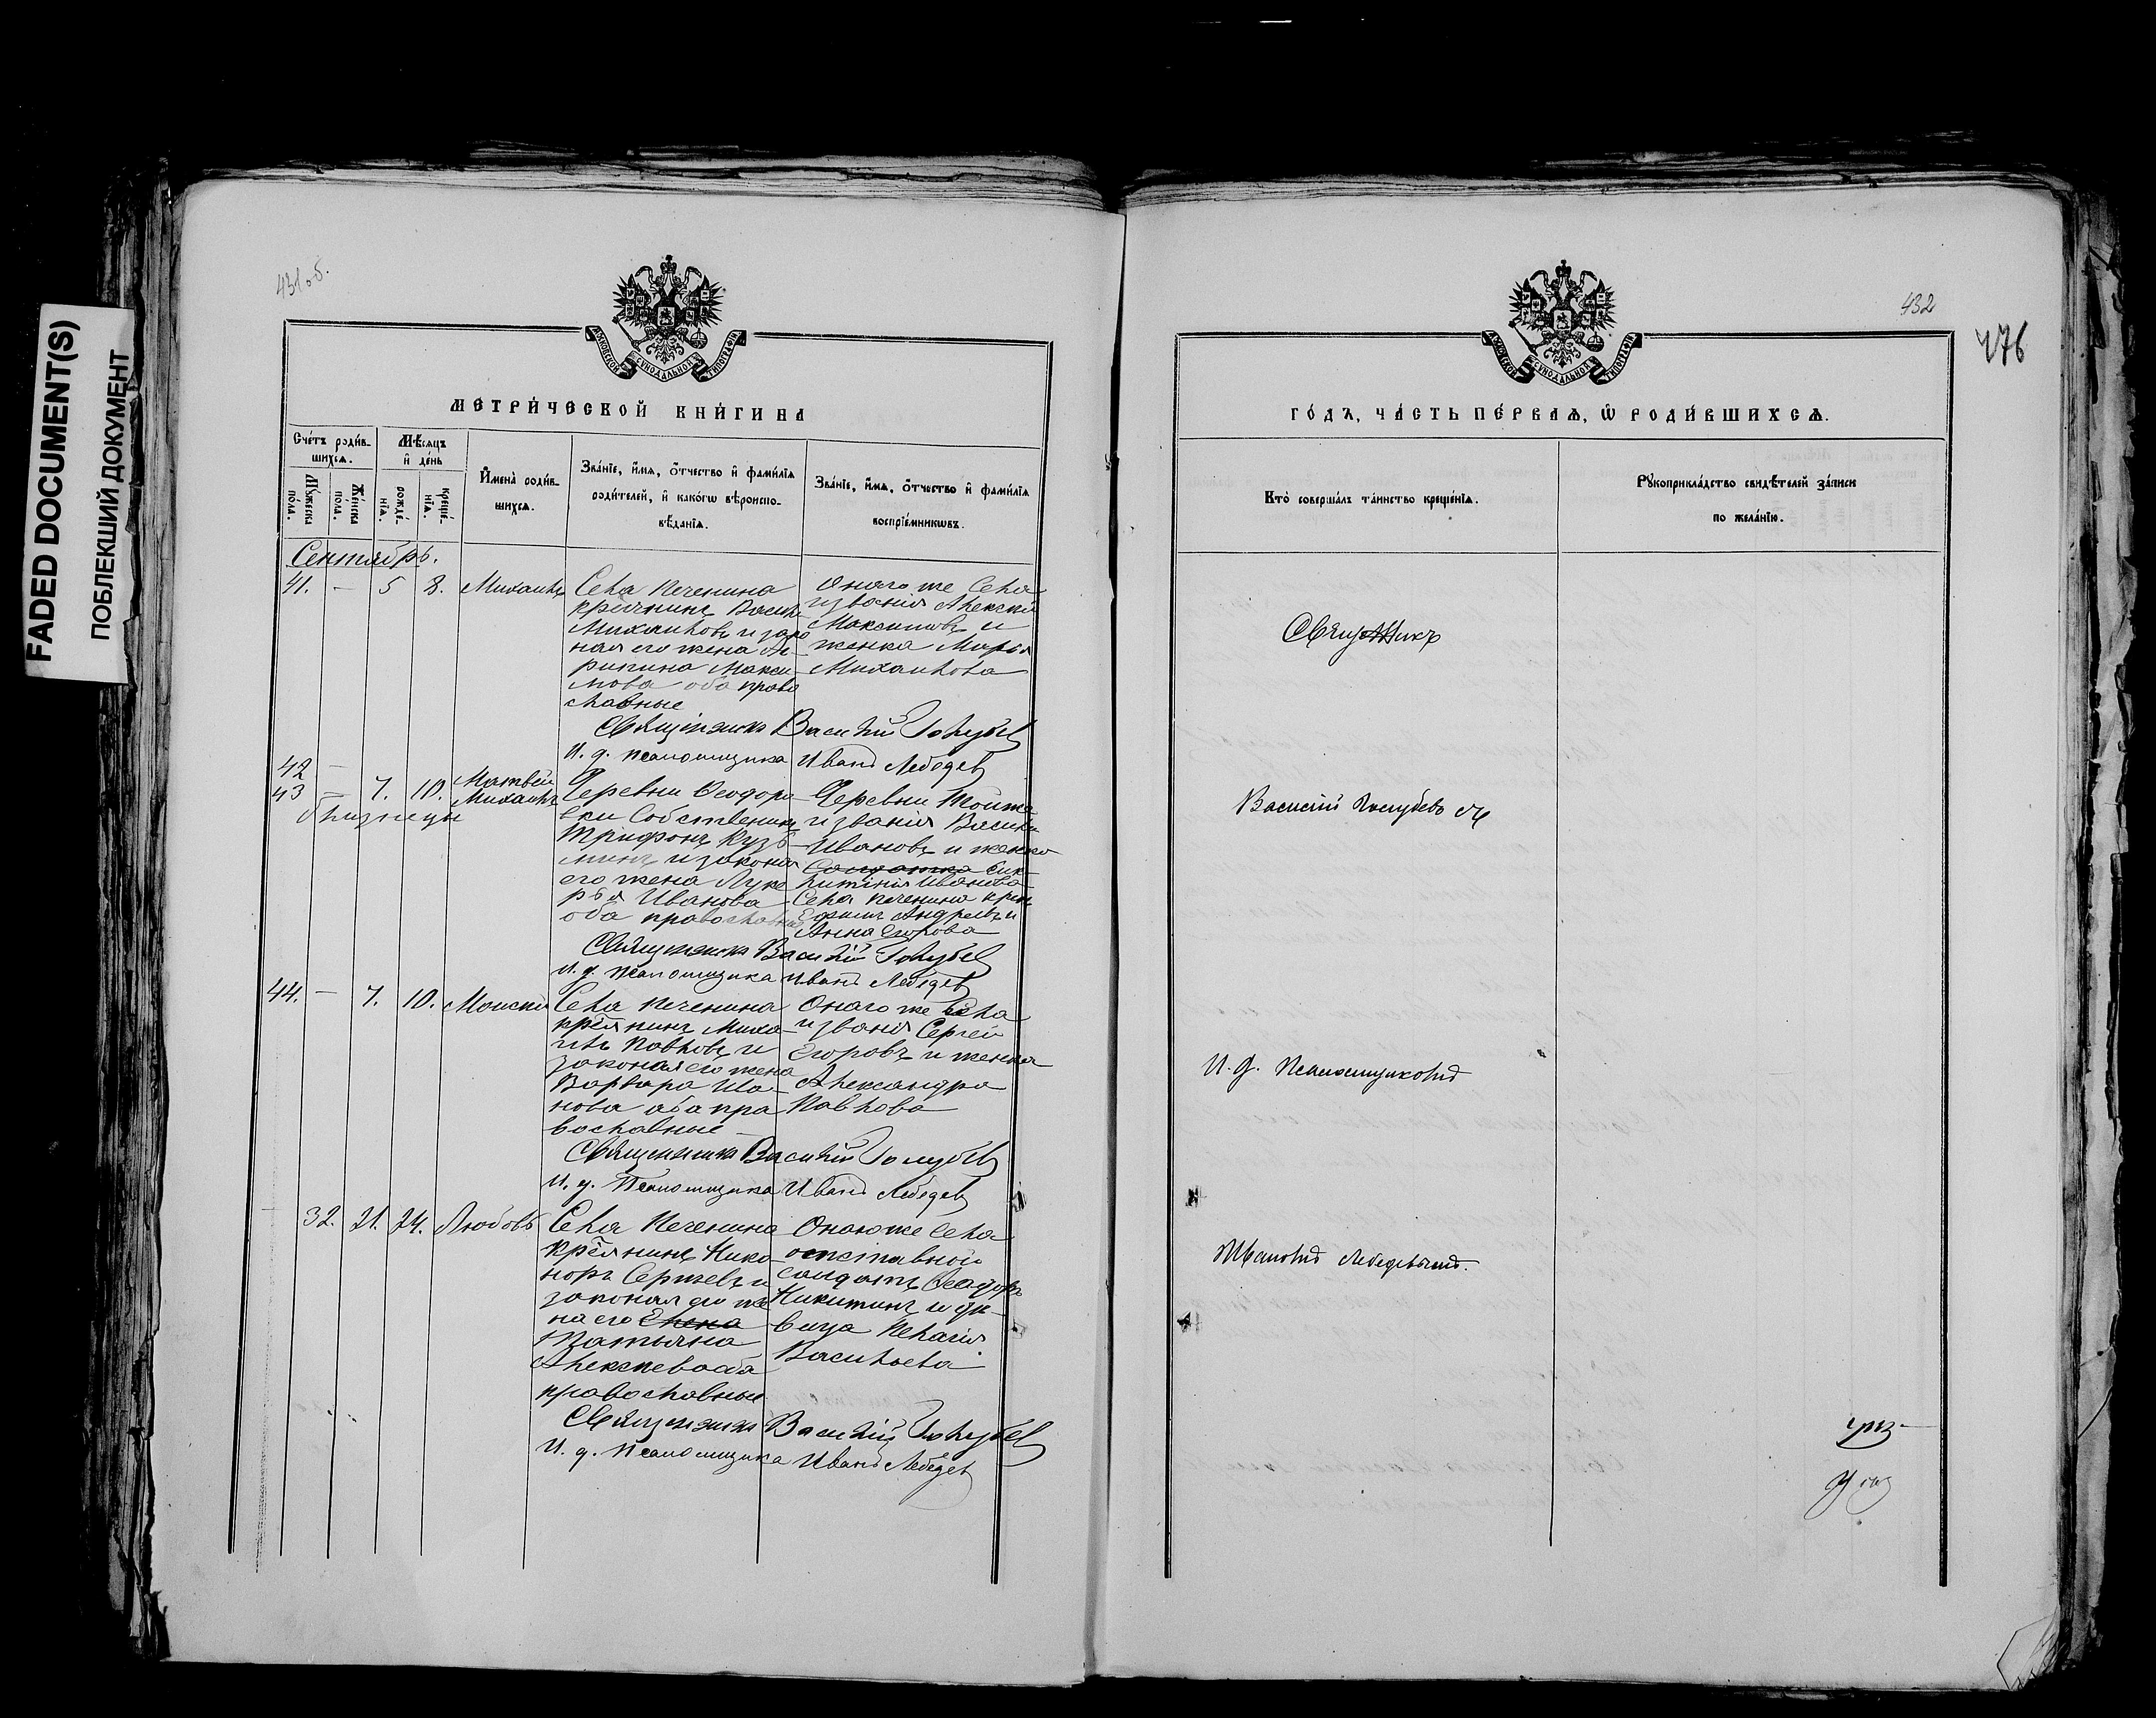 FADED DOCUMENT(S)
ПОБЛЕКШИЙ ДОКУМЕНТ
431 об.
МОСКОВСКОЙ СѴНОДАЛЬНОЙ ТИПОГРАФІИ
МЕТРИ́ЧЕСКОЙ КНИ́ГИ НА
Сче́тъ роди́в-
шихсѧ.
Мѣ́сѧцъ
и҆ де́нь
Мꙋ́жеска
пола.
Же́нска
пола.
рожде́-
нїѧ.
креще́-
нїѧ.
И҆мена̀ роди́в-
шихсѧ.
Зва́нїе, и҆́мѧ, о҆́тчество и҆ фами́лїѧ
роди́телей, и҆ како́гѡ вѣроиспо-
вѣ́данїѧ.
Зва́нїе, и҆́мѧ, о҆́тчество и҆ фами́лїѧ
воспрїе́мникѡвъ.
Сентябрь.
41. — 5 8. Михаилъ
Села Печенина
крестьянинъ Васил
Михаиловъ и зако
ная его жена
Макси
мова оба право
славные
Онаго же Села
и званія Алексѣй
Максимовъ и
женка Марья
Михаилова
Священникъ Василій Голубев
И. д. псаломщика Иванъ Лебедев
42 —
43 — 7. 10. Матвей
Михаилъ
близнецы
Деревни Феодоро
вки Собственникъ
Трифонъ Кузь
минъ и законая
его жена Луке
рья Иванова
оба православные
Деревни
и званія Василій
Ивановъ и женка
Солдатка
Иванова
Села Печенина крест
Ефимъ Андреевъ и
Анна Егорова
Священникъ Василій Голубев
И. д. псаломщика Иванъ Лебедев
44. — 7. 10. Моисей
Села Печенина
крестьянинъ Миха
илъ Павловъ и
законая его жена
Варвара Ива-
нова оба пра
вославные
Онаго же Села
и званія Сергей
Егоровъ и женка
Александра
Павлова
Священникъ Василій Голубев
И. д. Псаломщика Иванъ Лебедев
32. 21. 24. Любовь
Села Печенина
крестьянинъ Ника
норъ Сергеевъ и
законая его же
на его Елена
Татьяна
Алексеева оба
православные
Онаго же Села
отставной
солдатъ Феодоръ
Никитинъ и де-
вица Пелагія
Васильева
Священникъ Василій Голубев
И. д. псаломщика Иванъ Лебедев
432
476
МОСКОВСКОЙ СѴНОДАЛЬНОЙ ТИПОГРАФІИ
ГО́ДЪ, ЧА́СТЬ ПЕ́РВАѦ, Ѡ҆ РОДИ́ВШИХСѦ.
Кто̀ соверша́лъ та́инство креще́нїѧ.
Рꙋкоприкла́дство свидѣ́телей за́писи
по жела́нїю.
Священникъ
Василій Голубевъ съ
И. д. Псаломщикомъ
Иваномъ Лебедевымъ.